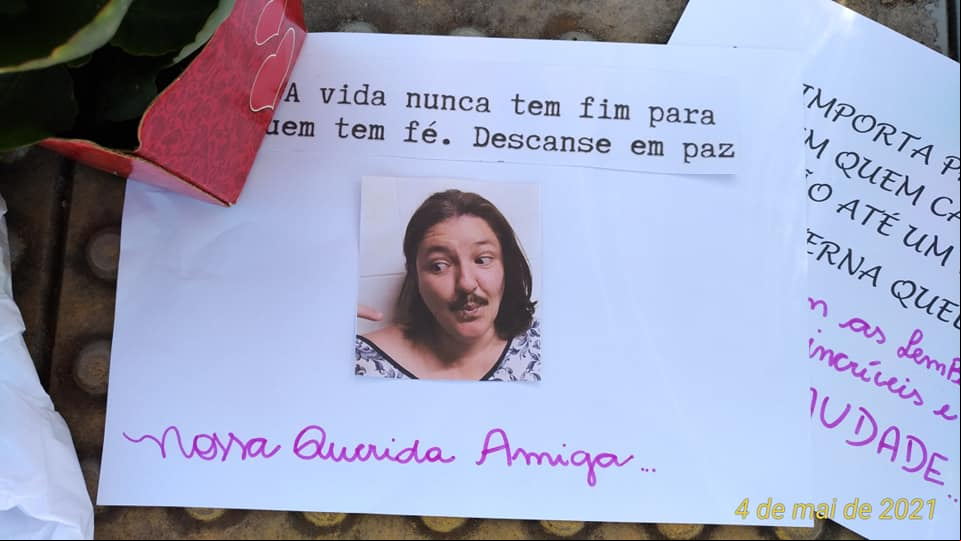 A vida nunca tem fim para
uem tem fé. Descanse em paz
Nossa Querida Amiga...
IMPORTA P
M QUEM CA
O ATÉ UM
ERNA QUE
as LemB
incríveis e
UDADE...
4 de mai de 2021